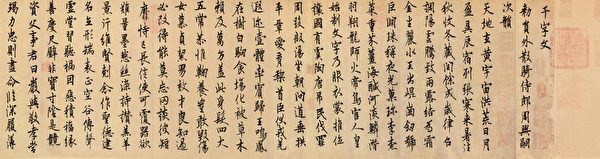 千字文
勑員外散騎侍郎周興嗣
次韻
天地玄黃宇宙洪荒日月
盈昃辰宿列張寒來暑往
秋收冬藏閏餘成歲律召
調陽雲騰致雨露結為霜
金生麗水玉出崐崗劒號
巨闕珠稱夜光菓珎李柰
菜重芥薑海醎河淡鱗潛
羽翔龍師火帝鳥官人皇
始制文字乃服衣裳推位
讓國有虞陶唐弔民伐罪
周發殷湯坐朝問道垂拱
平章愛育黎首臣伏戎羌
遐迩壹體率賓歸王鳴鳳
在樹白駒食場化被草木
賴及萬方蓋此身髮四大
五常恭惟鞠養豈敢毀傷
女慕貞潔男效才良知過
必改得能莫忘罔談彼短
靡恃己長信使可覆器欲
難量墨悲絲染詩讚羔羊
景行維賢剋念作聖德建
名立形端表正空谷傳聲
虛堂習聽禍因惡積福緣
善慶尺璧非寶寸陰是競
資父事君曰嚴與敬孝當
竭力忠則盡命臨深履薄